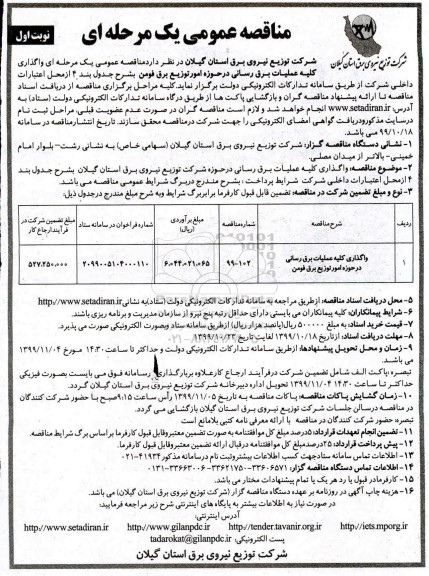 نوبت اول
مناقصه عمومی یک مرحله ای
شرکت توزیع نیروی برق استان گیلان
شرکت توزیع نیروی برق استان گیلان در نظر دارد مناقصه عمومی یک مرحله ای واگذاری
کلیه عملیات برق رسانی در حوزه امور توزیع برق فومن بشرح جدول بند ۴ از محل اعتبارات
داخلی شرکت از طریق سامانه تدارکات الکترونیکی دولت برگزار نماید. کلیه مراحل برگزاری مناقصه از دریافت اسناد
مناقصه تا ارائه پیشنهاد مناقصه گران و بازگشایی پاکت ها از طریق درگاه سامانه تدارکات الکترونیکی دولت (ستاد) به
آدرس: www.setadiran.ir انجام خواهد شد و لازم است مناقصه گران در صورت عدم عضویت قبلی، مراحل ثبت نام
در سایت مذکور و دریافت گواهی امضای الکترونیکی را جهت شرکت در مناقصه محقق سازند. تاریخ انتشار مناقصه در سامانه
۹۹/۱۰/۱۸ می باشد.
۱- نشانی دستگاه مناقصه گزار: شرکت توزیع نیروی برق استان گیلان (سهامی خاص) به نشانی رشت- بلوار امام
خمینی- بالاتر از میدان مصلی.
۲- موضوع مناقصه: واگذاری کلیه عملیات برق رسانی در حوزه شرکت توزیع نیروی برق استان گیلان بشرح جدول بند
۴ از محل اعتبارات داخلی شرکت شرایط پرداخت: بشرح مندرج در برگ شرایط عمومی مناقصه می باشد.
۳- نوع و مبلغ تضمین شرکت در مناقصه: تضمین قابل قبول کارفرما برابر برگ شرایط و به شرح مبلغ مندرج در جدول ذیل:
ردیف شرح مناقصه شماره مناقصه مبلغ برآوردی (ریال) شماره فراخوان در سامانه ستاد مبلغ تضمین شرکت در فرآیند ارجاع کار
۱ واگذاری کلیه عملیات برق رسانی در حوزه امور توزیع برق فومن ۹۹-۱۰۲ ۶,۰۴۴,۰۲۱,۰۶۵ ۲۰۹۹۰۰۵۱۰۴۰۰۰۱۱۰ ۵۲۷,۲۵۰,۰۰۰
۵- محل دریافت اسناد مناقصه: از طریق مراجعه به سامانه تدارکات الکترونیکی دولت (ستاد) به نشانی http://www.setadiran.ir
۶- شرایط پیمانکاران: کلیه پیمانکاران می بایستی دارای حداقل رتبه پنج نیرو از سازمان مدیریت و برنامه ریزی باشند.
۷- قیمت خرید اسناد: به مبلغ ۵۰۰۰۰۰ ریال (پانصد هزار ریال) از طریق سامانه ستاد و بصورت الکترونیکی صورت می پذیرد.
۸- مهلت دریافت اسناد: از تاریخ ۱۳۹۹/۱۰/۱۸ لغایت تاریخ ۱۳۹۹/۱۰/۲۳
۹- زمان و محل تحویل پیشنهادها: از طریق سامانه تدارکات الکترونیکی دولت و حداکثر تا ساعت ۱۴:۳۰ مورخ ۱۳۹۹/۱۱/۰۴
می باشد.
تبصره: پاکت الف شامل تضمین شرکت در فرآیند ارجاع کار علاوه بر بارگذاری در سامانه فوق می بایست بصورت فیزیکی
حداکثر تا ساعت ۱۴:۳۰ ۱۳۹۹/۱۱/۰۴ تحویل اداره دبیرخانه شرکت توزیع نیروی برق استان گیلان گردد.
۱۰- زمان گشایش پاکات مناقصه: پاکات مناقصه به تاریخ ۱۳۹۹/۱۱/۰۵ رأس ساعت ۹:۱۵ صبح با حضور شرکت کنندگان
در مناقصه در سالن جلسات شرکت توزیع نیروی برق استان گیلان بازگشایی می گردد.
تبصره: حضور شرکت کنندگان در مناقصه با ارائه معرفی نامه کتبی بلامانع است
۱۱- تضمین انجام تعهدات قرارداد: ۵ درصد مبلغ کل موافقتنامه به صورت تضمین معتبر و قابل قبول کارفرما بر اساس برگ شرایط مناقصه.
۱۲- پیش پرداخت قرارداد: ۲۵ درصد مبلغ کل موافقتنامه در قبال ارائه تضمین معتبر و قابل قبول کارفرما.
۱۳- اطلاعات تماس سامانه ستاد جهت کسب اطلاعات بیشتر و ثبت نام در سامانه مذکور ۴۱۹۳۴-۰۲۱
۱۴- اطلاعات تماس دستگاه مناقصه گزار: ۳۳۶۰۶۵۷۱-۳۳۶۲۱۷۵۰-۳۳۶۶۳۰۰۶-۰۱۳۱
۱۵- کارفرما در قبول یا رد هر یک یا تمام پیشنهادات مختار می باشد.
۱۶- هزینه چاپ آگهی در روزنامه بر عهده دستگاه مناقصه گزار (شرکت توزیع نیروی برق استان گیلان) می باشد.
در صورت نیاز به اطلاعات بیشتر به پایگاه های اینترنتی شرح زیر مراجعه فرمایید:
آدرس اینترنتی:
http://www.setadiran.ir http://www.gilanpdc.ir http://tender.tavanir.org.ir http://iets.mporg.ir
پست الکترونیکی: tadarokat@gilanpdc.ir
شرکت توزیع نیروی برق استان گیلان